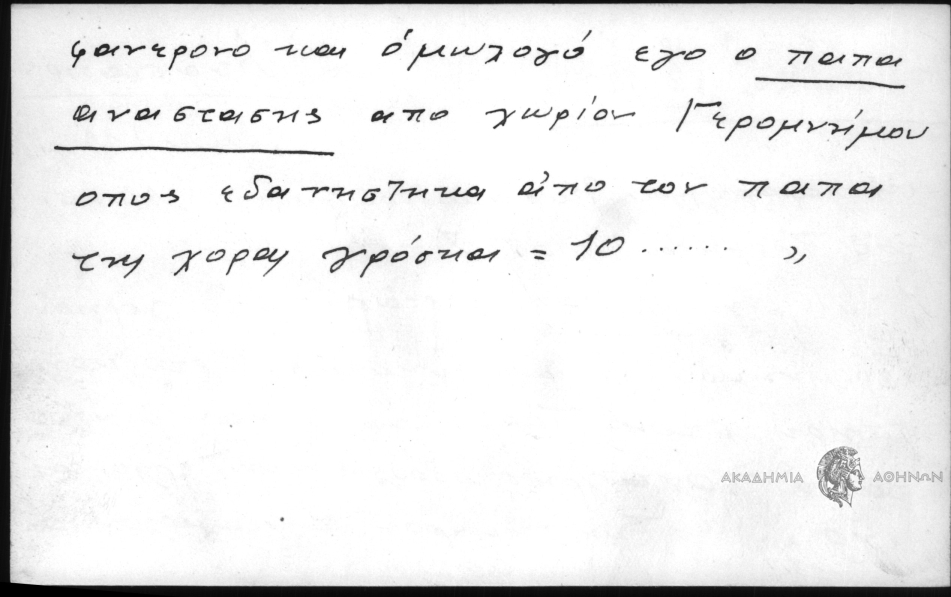 φανερονο και ὁμωλογό εγο ο παπα
αναστασης απο χωρίον Γερομνήμου
οπος εδανηστηκα ἀπο τον παπα
της χορας γρόσια = 10 ...... „
ΑΚΑΔΗΜΙΑ ΑΘΗΝΩΝ